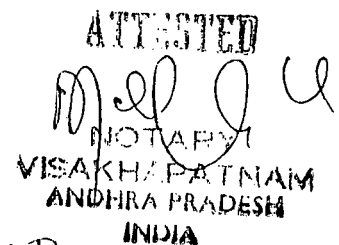 ATTESTED
NOTARY
VISAKHAPATNAM
ANDHRA PRADESH
INDIA